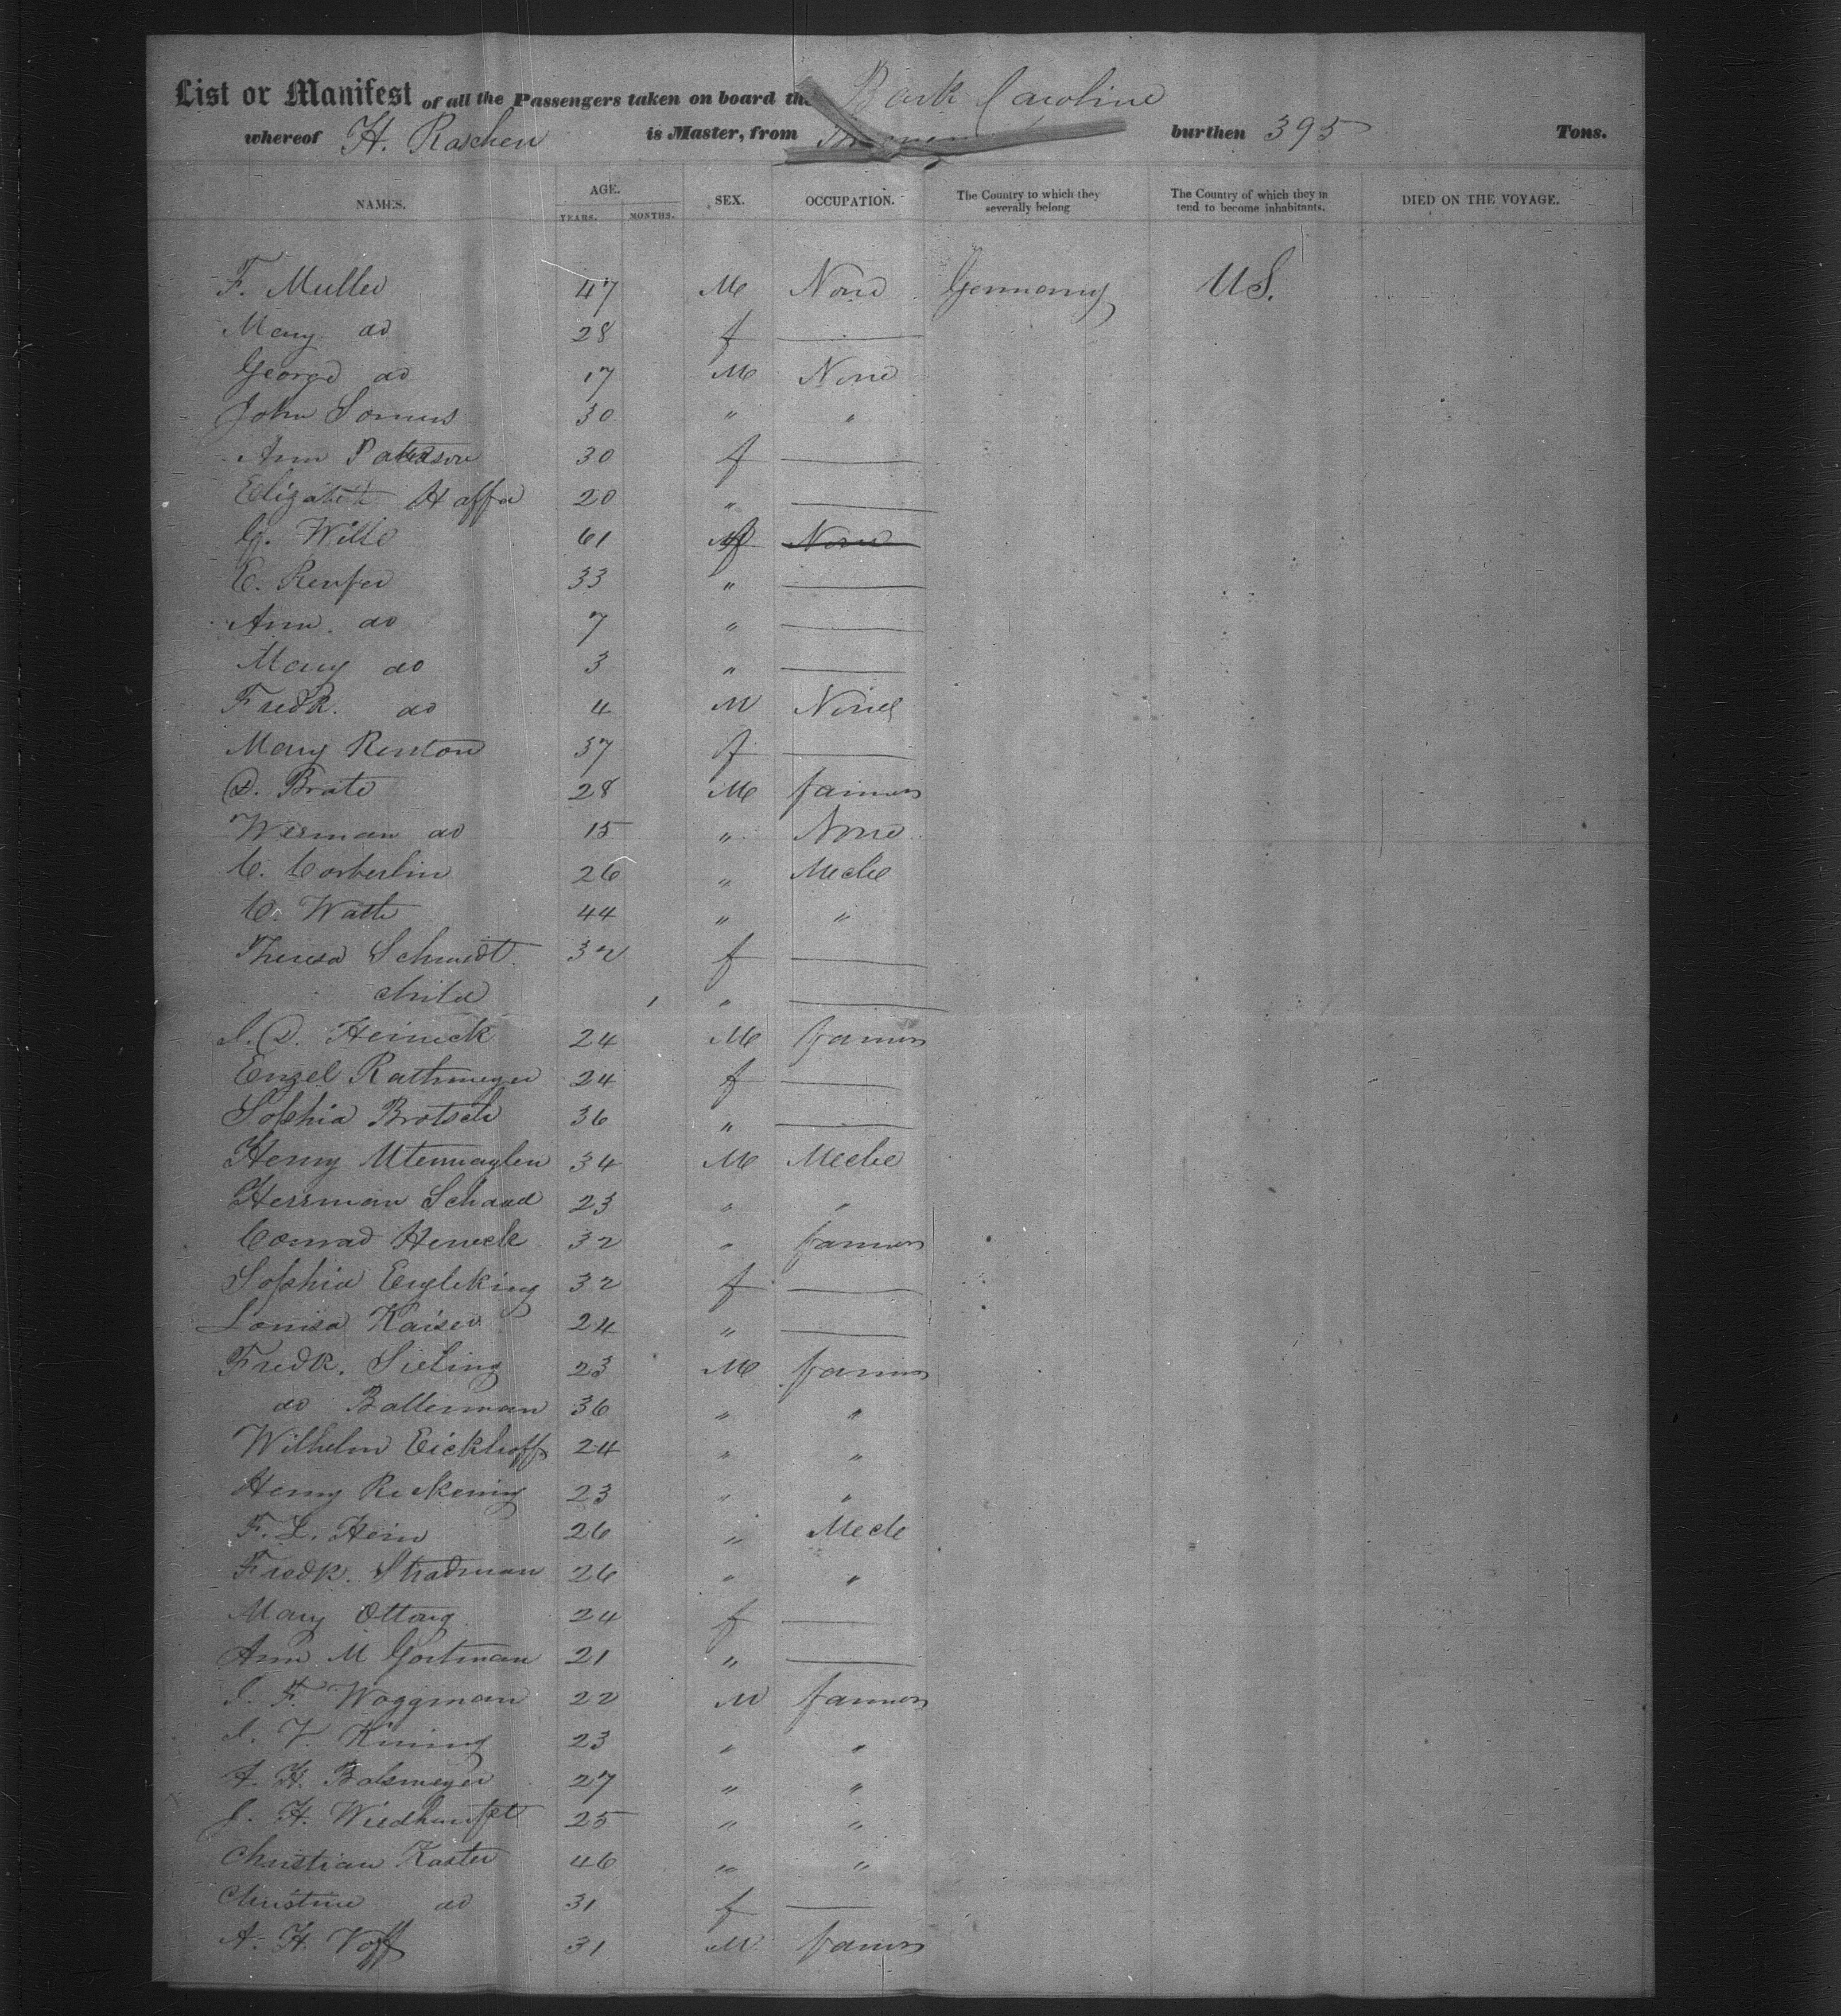 List or Manifest of all the Passengers taken on board the Bark Caroline
whereof H. Raschen is Master, from Bremen burthen 395 Tons.
NAMES. AGE. YEARS. MONTHS. SEX. OCCUPATION. The Country to which they severally belong The Country of which they in tend to become inhabitants. DIED ON THE VOYAGE.
F. Muller 47 M None Germany U S.
Mary do 28 f —
George do 17 M None
John Somus 30 " "
Ann Paterson 30 f —
Elizabeth Haffer 20 " —
G. Wille 61 f None
C. Renfer 33 " —
Ann do 7 " —
Mary do 3 " —
Fredk. do 4 M None
Mary Renton 37 f —
D. Brate 28 M farmer
Werman do 15 " None
C. Corberlin 26 " Mech
C. Watte 44 " "
Theresa Schmidt 32 f —
child 1 " —
J. D. Heineck 24 M farmer
Engel Rathmeyer 24 f —
Sophia Brotsch 36 " —
Henry 34 M Mech
Herrman Schaad 23 " "
Conrad Heneck 32 " farmer
Sophia Engleking 32 f —
Louisa Kaiser 24 " —
Fredk. Sieling 23 M farmer
do Ballerman 36 " "
Wilhelm Eickhoff 24 " "
Henry Reckening 23 " "
F. L. Hein 26 " Mech
Fredk. Stradman 26 " "
Mary Ottong 24 f —
Ann M Gortman 21 " —
J. F. Woggman 22 M farmer
J. F. Kining 23 " "
A. H. Balsmeyer 27 " "
J. H. 25 " "
Christian Kaster 46 " "
Christine do 31 f —
A. H. Voff 31 M farmer